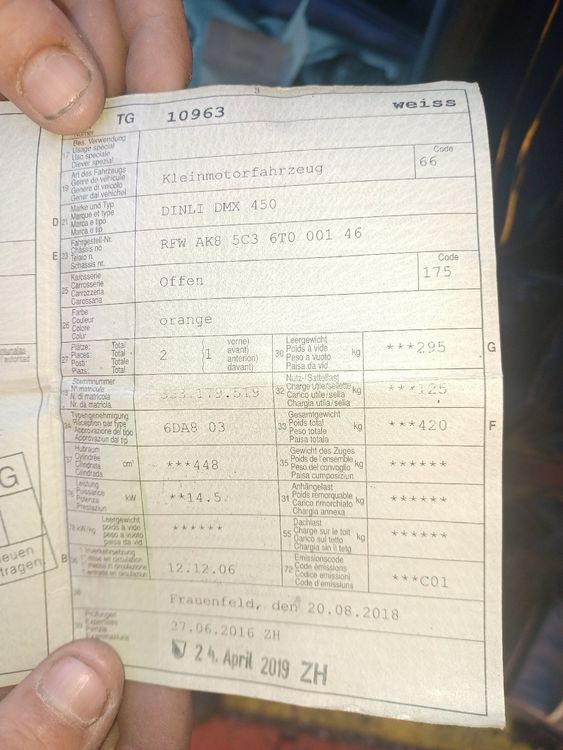 3
TG 10963 weiss
Bes. Verwendung
17 Usage spécial
Uso speciale
Diever spezial
Art des Fahrzeugs Code
19 Genre de véhicule Kleinmotorfahrzeug 66
Genere di veicolo
Gener dal vehichel
Marke und Typ
D 21 Marque et type DINLI DMX 450
Marca e tipo
Marca e tip
Fahrgestell-Nr.
E 23 Châssis no RFW AK8 5C3 6T0 001 46
Telaio n.
Schassis nr.
Karosserie Code
25 Carrosserie Offen 175
Carrozzeria
Carossaria
Farbe
26 Couleur orange
Colore
Colur
Plätze: Total vorne) Leergewicht
27 Places: Total 2 (1 avant) 30 Poids à vide kg ***295 G
Posti: Totale anteriori) Peso a vuoto
Plazs: Total davant) Paisa da vid
Stammnummer Nutz-/Sattellast
18 N° matricule 353.179.519 32 Charge utile/sellette kg ***125
N. di matricola Carico utile/sella
Nr. da matricla Chargia utila/sella
Typengenehmigung Gesamtgewicht
24 Réception par type 6DA8 03 33 Poids total kg ***420 F
Approvazione del tipo Peso totale
Approvaziun dal tip Paisa totala
Hubraum Gewicht des Zuges
37 Cylindrée cm³ ***448 35 Poids de l'ensemble kg ******
Cilindrata Peso del convoglio
Cilindrada Paisa cumposiziun
Leistung Anhängelast
76 Puissance kW **14.5 31 Poids remorquable kg ******
Potenza Carico rimorchiato
Prestaziun Chargia annexa
Leergewicht Dachlast
78 kW/kg poids à vide ****** 55 Charge sur le toit kg ******
peso a vuoto Carico sul tetto
paisa da vid Chargia sin il tetg
B 36 1. Inverkehrsetzung Emissionscode
1re mise en circulation 12.12.06 72 Code émissions ***C01
1. messa in circolazione Codice emissioni
1. entrada en circulaziun Code d'emissiuns
38 Frauenfeld, den 20.08.2018
Prüfungen
39 Expertises 27.06.2016 ZH
Perizie
Examinaziuns
24. April 2019 ZH
G
neuen
tragen.